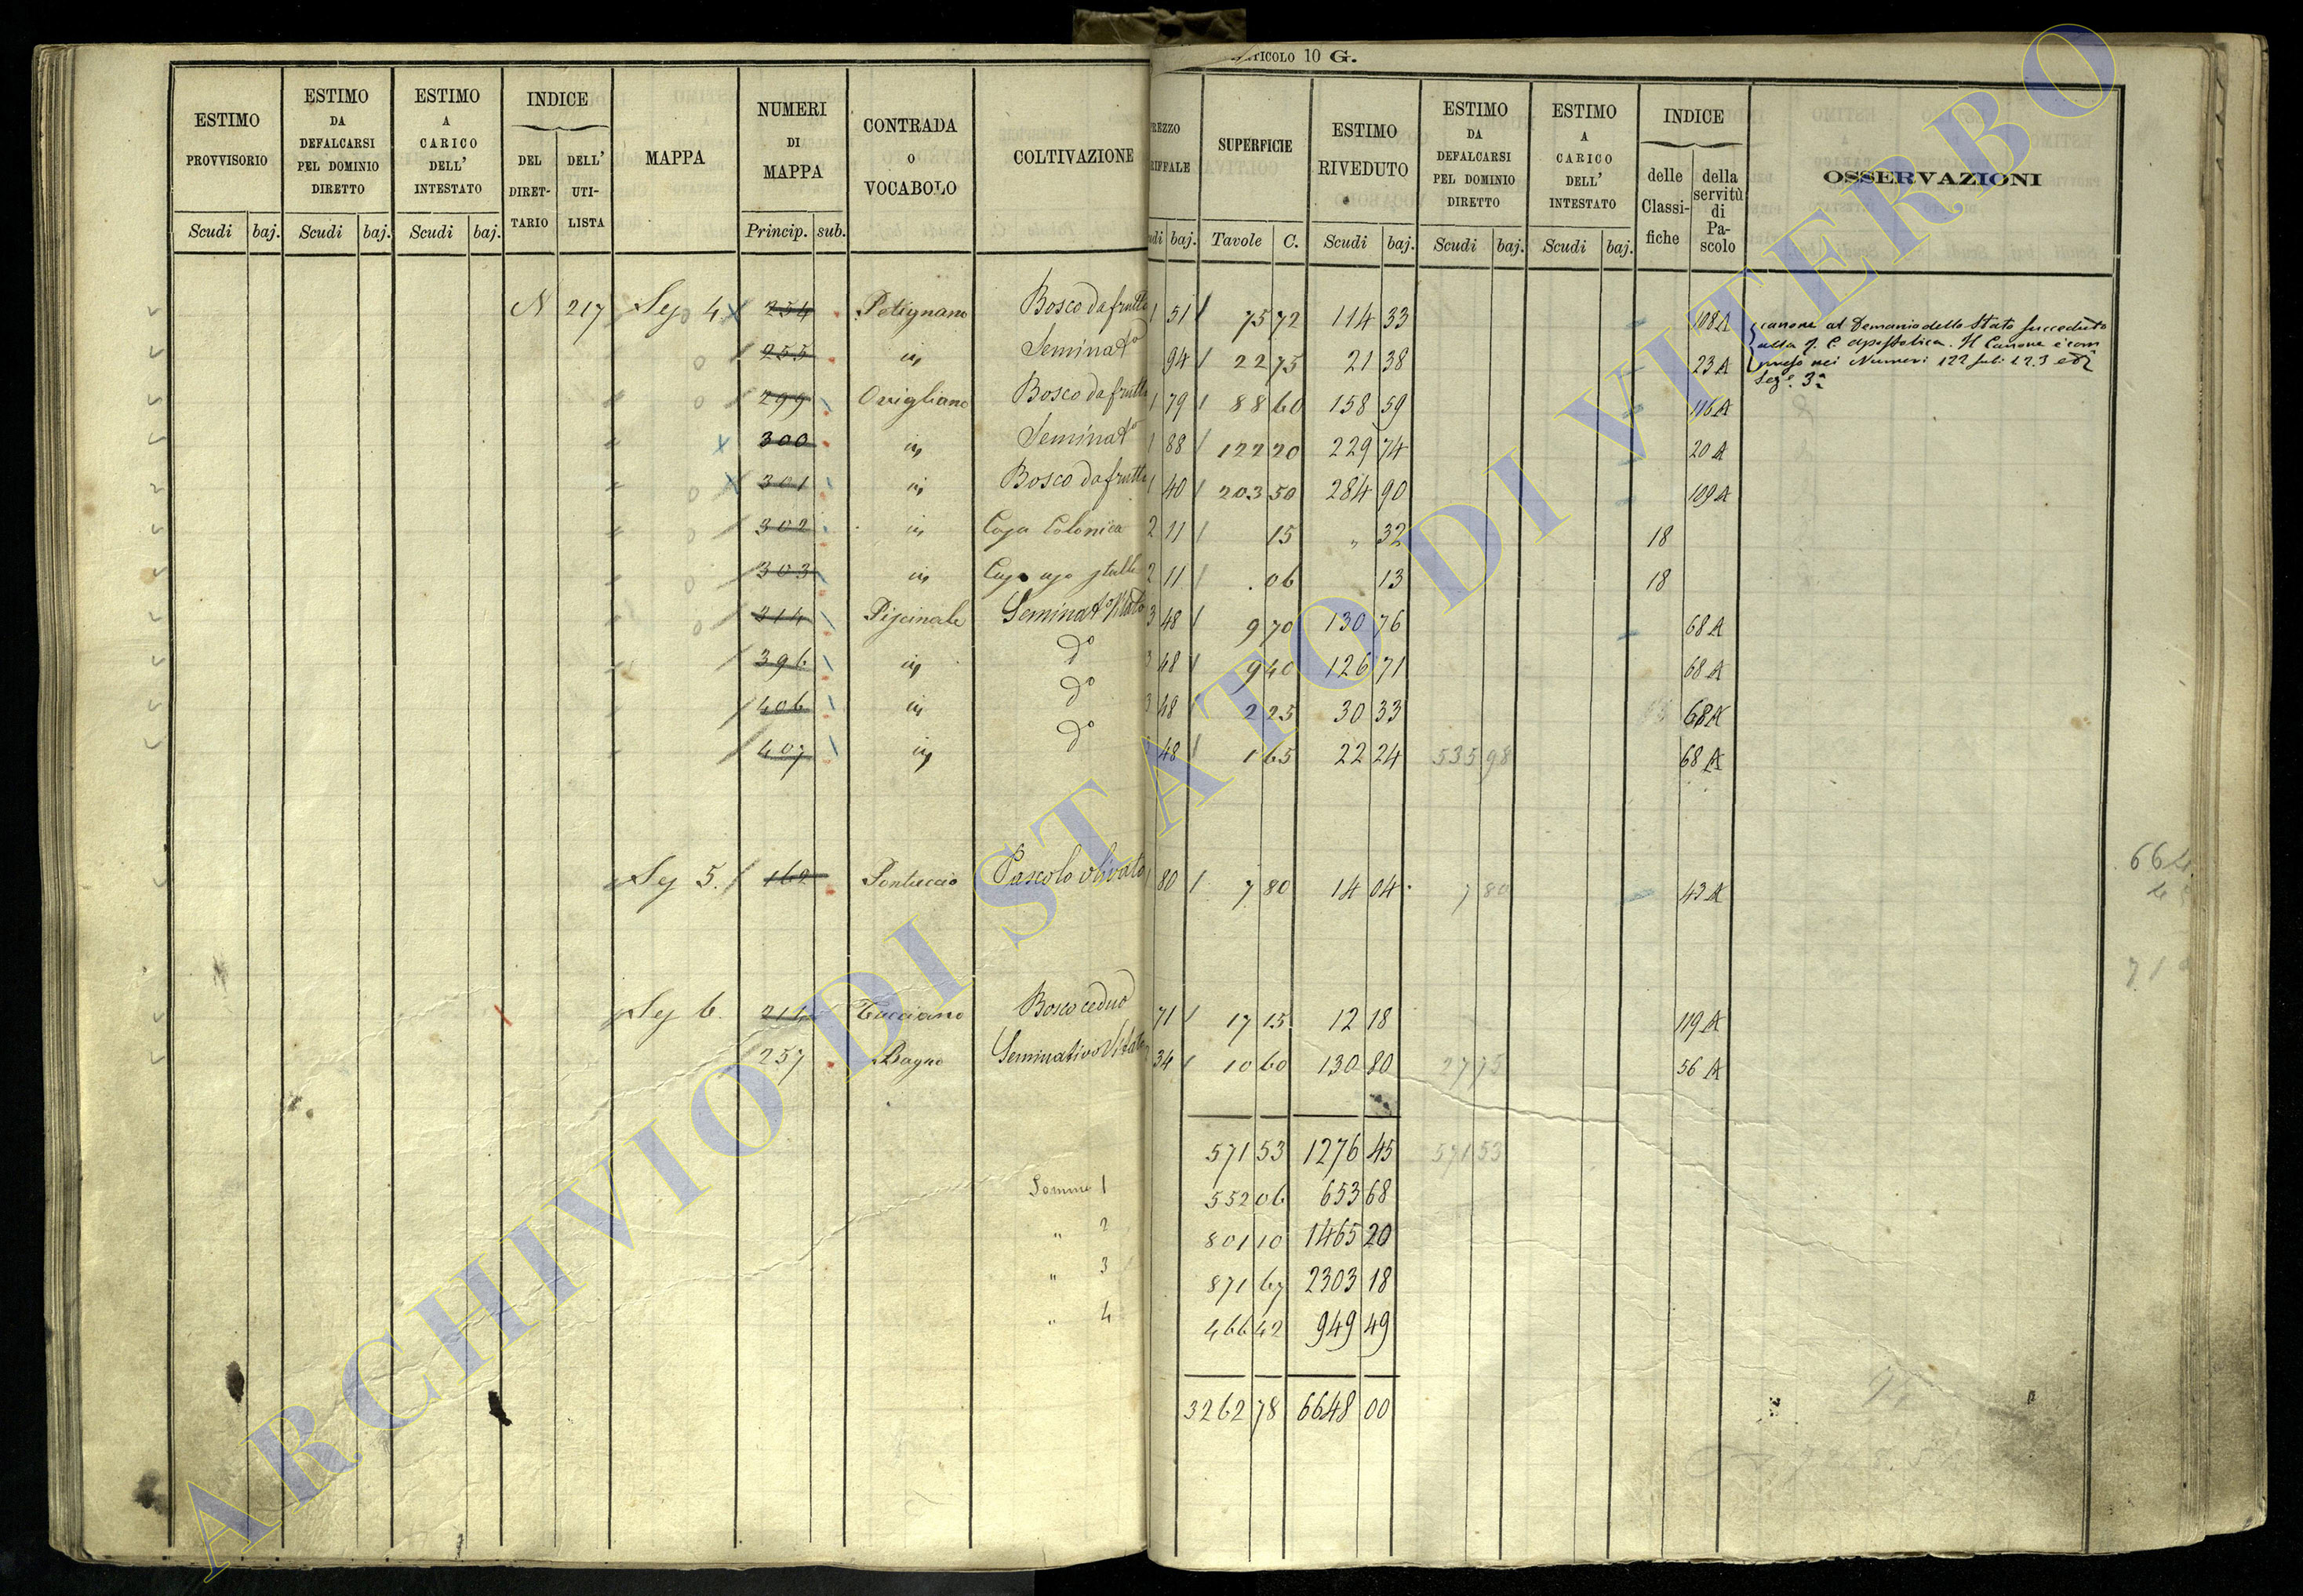 ARTICOLO 10 G.
ESTIMO PROVVISORIO
Scudi baj.
ESTIMO DA DEFALCARSI PEL DOMINIO DIRETTO
Scudi baj.
ESTIMO A CARICO DELL' INTESTATO
Scudi baj.
INDICE
DEL DIRET- TARIO
DELL' UTI- LISTA
MAPPA
NUMERI DI MAPPA
Princip. sub.
CONTRADA O VOCABOLO
COLTIVAZIONE
REZZO RIFFALE
udi baj.
SUPERFICIE
Tavole C.
ESTIMO RIVEDUTO
Scudi baj.
ESTIMO DA DEFALCARSI PEL DOMINIO DIRETTO
Scudi baj.
ESTIMO A CARICO DELL' INTESTATO
Scudi baj.
INDICE
delle Classi- fiche
della servitù di Pa- scolo
OSSERVAZIONI
N 217 Sez 4 254 Petignano Bosco da frutto 1 51 75 72 114 33 108 A
255 id Seminat° 94 22 75 21 38 23 A
299 Ovigliano Bosco da frutto 1 79 88 60 158 59 116 A
300 id Seminat° 1 88 122 20 229 74 20 A
301 id Bosco da frutto 1 40 203 50 284 90 109 A
302 id Casa Colonica 2 11 15 " 32 18
303 id Casa uso stalla 2 11 06 13 18
314 Piscinale Seminat° Vitato 3 48 9 70 130 76 68 A
396 id d° 3 48 9 40 126 71 68 A
406 id d° 3 48 2 25 30 33 68 A
407 id d° 48 1 65 22 24 535 98 68 A
canone al Demanio dello Stato succeduto
alla R. C. Apostolica. Il Canone è com
preso nei Numeri 122 sub 1.2.3 ed
Sez. 3ª
Sez 5. 162 Pontuccio Pascolo olivato 1 80 7 80 14 04 7 80 43 A
664
Sez 6. 214 Tucciano Bosco ceduo 71 17 15 12 18 119 A
257 Bagno Seminativo Vitato 34 10 60 130 80 27 75 56 A
571 53 1276 45 571 53
Somma 1 552 06 653 68
" 2 801 10 1465 20
" 3 871 67 2303 18
" 4 466 42 949 49
3262 78 6648 00
ARCHIVIO DI STATO DI VITERBO